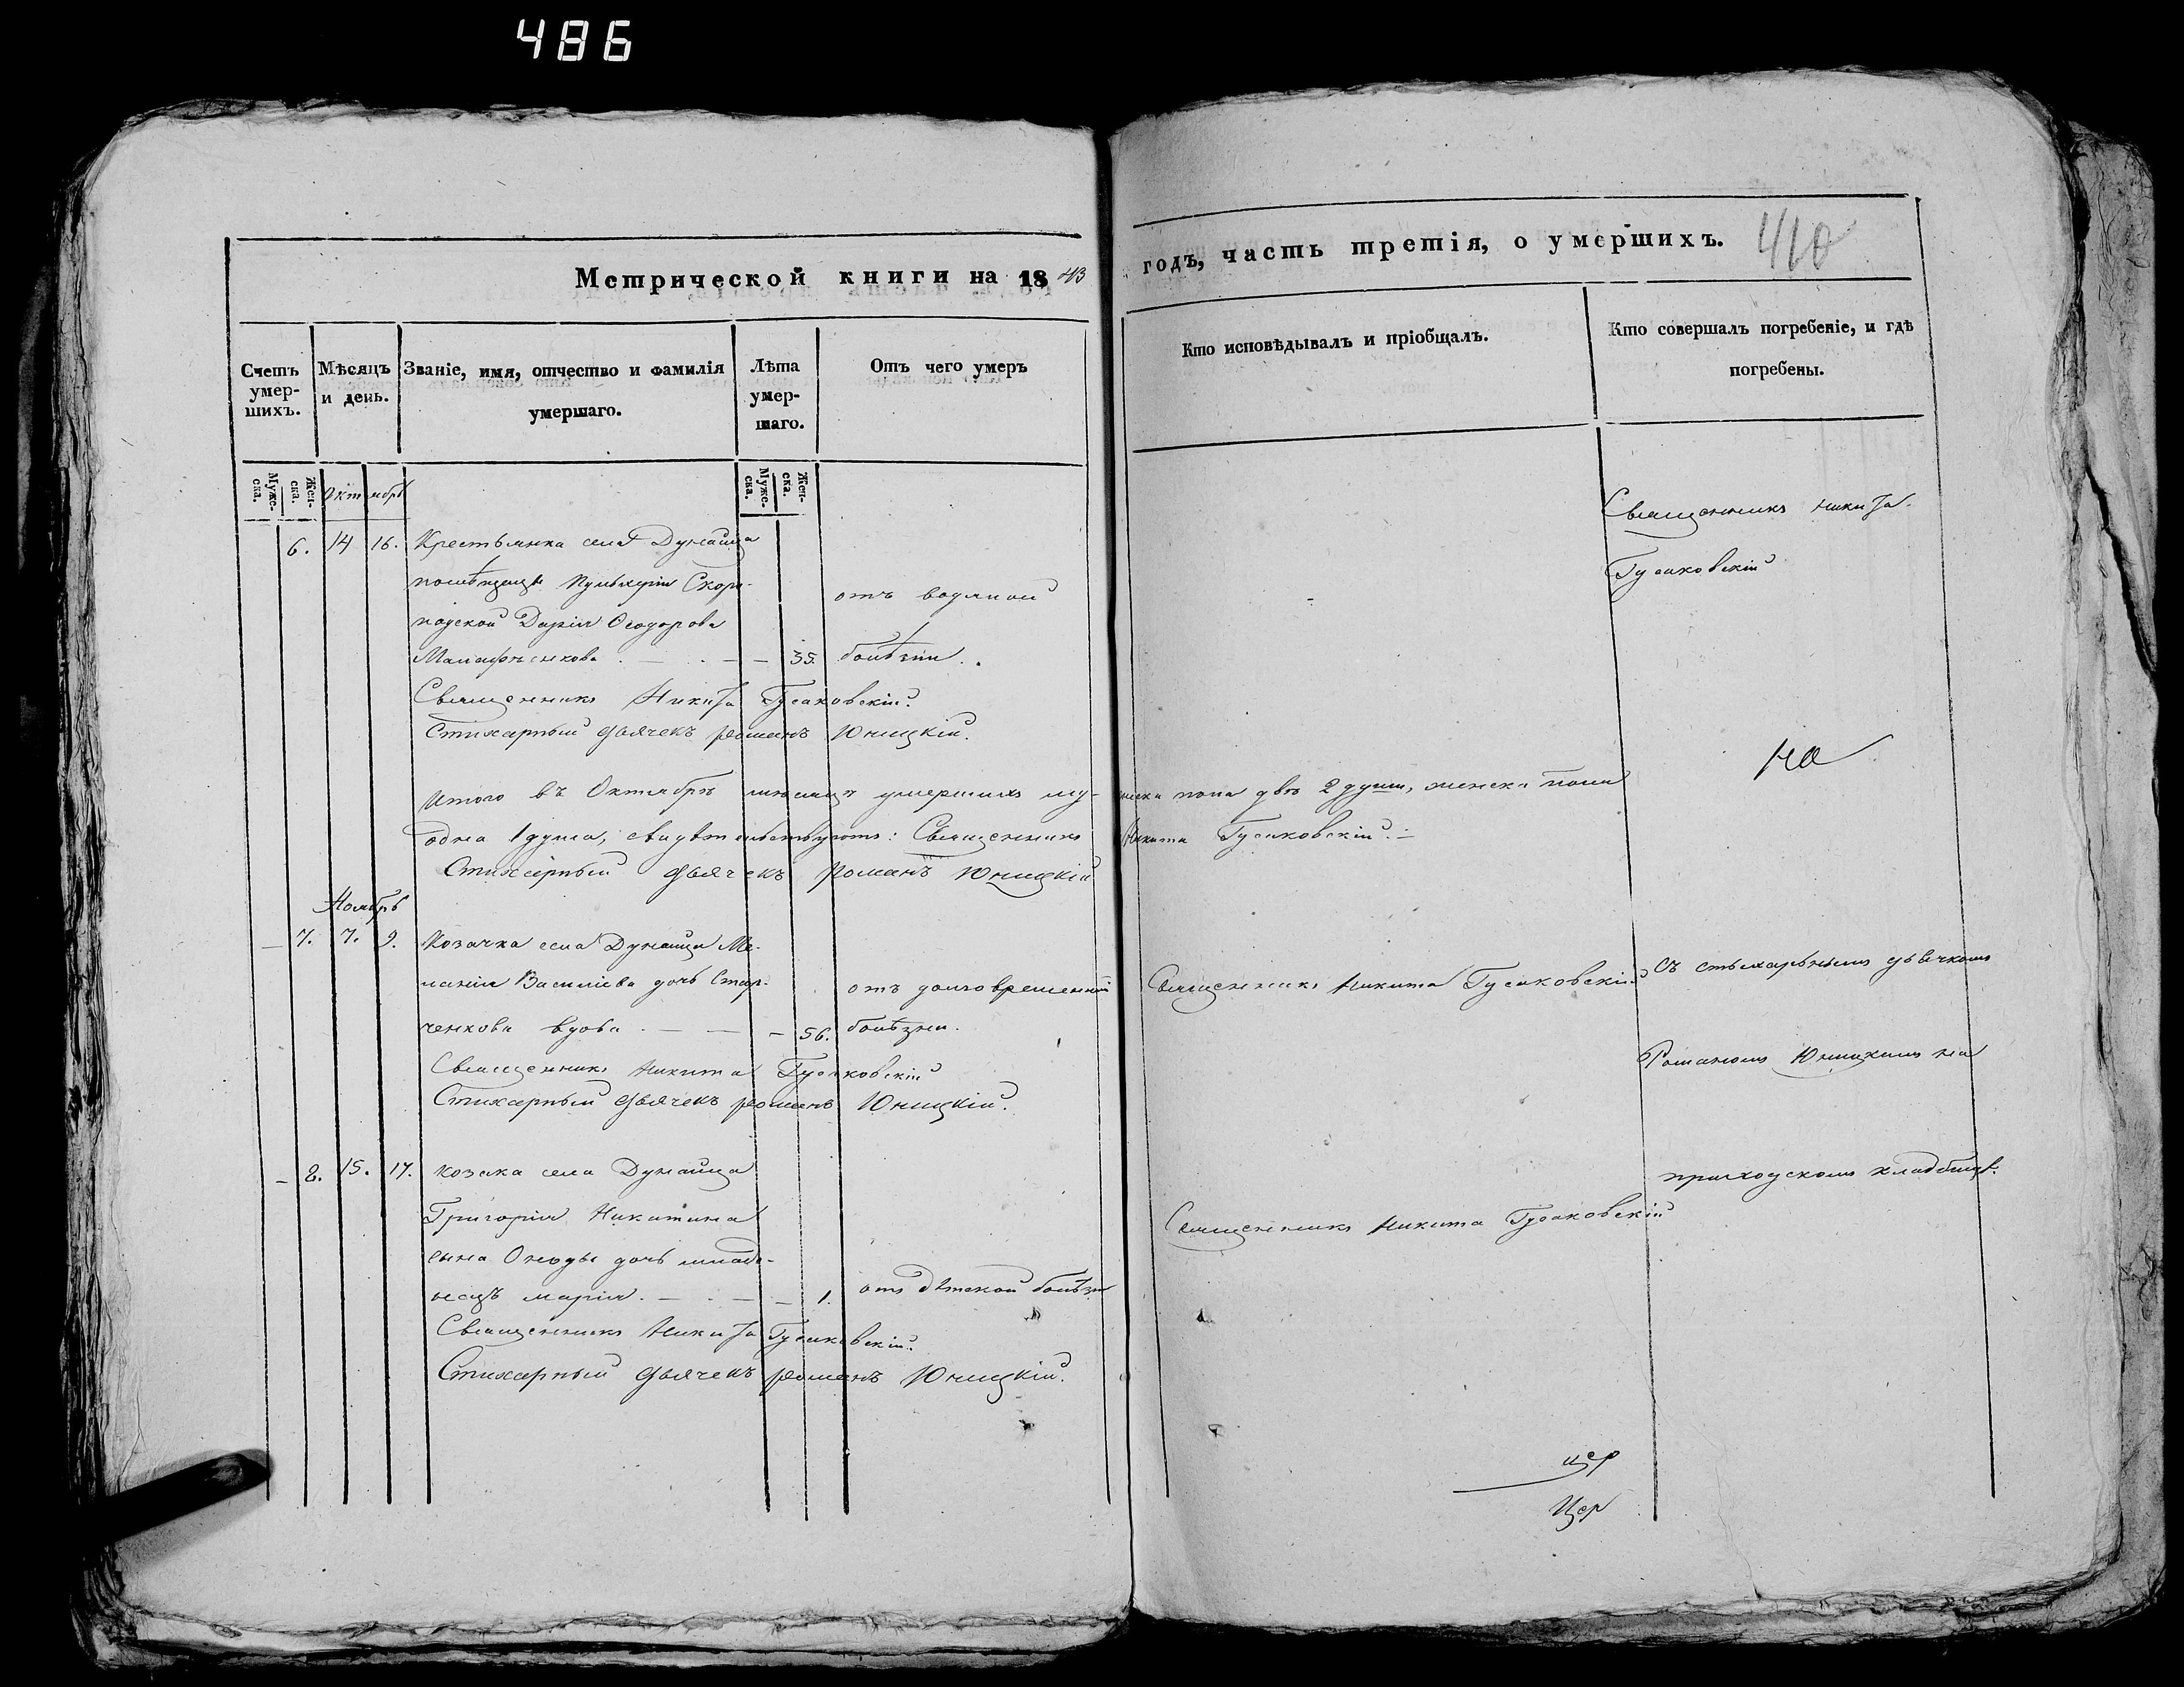 486
Метрической книги на 1843
годъ, часть третія, о умершихъ.
410
Счетъ умер-шихъ.
Мѣсяцъ и день.
Званіе, имя, отчество и фамилія умершаго.
Лѣта умер-шаго.
Отъ чего умеръ
Кто исповѣдывалъ и пріобщалъ.
Кто совершалъ погребеніе, и гдѣ погребены.
Муже-ска.
Жен-ска.
Октябрь
Муже-ска.
Жен-ска.
6. 14 16. Крестьянка села Дунайца
помѣщицы Пулхеріи Скоро-
падской Дарія Ѳеодорова
отъ водяной
35. болѣзни.
Священникъ Никита Гусаковскій.
Стихарный Дьячекъ Романъ Юницкій.
Священникъ Никита
Гусаковскій
Итого въ Октябрѣ мѣсяцѣ умершихъ му-
жеска пола двѣ 2 души, женска пола
одна 1 душа, свидѣтельствуютъ: Священникъ
Никита Гусаковскій.
Стихарный Дьячекъ Романъ Юницкій
на
Ноябрь
— 7. 7. 9. Козачка села Дунайца Ме-
ланія Василіева дочь
ченкова вдова — 56.
отъ долговременной
болѣзни.
Священникъ Никита Гусаковскій
Стихарный Дьячекъ Романъ Юницкій.
Священникъ Никита Гусаковскій
съ стыхарнымъ дьячкомъ
Романомъ Юницкимъ на
— 8. 15. 17. Козака села Дунайца
Григорія Никитина
сына дочь младе-
нецъ Марія. — 1.
отъ дѣтской болѣзни
Священникъ Никита Гусаковскій.
Стихарный Дьячекъ Романъ Юницкій.
Священникъ Никита Гусаковскій
приходскомъ кладбищѣ.
цер
Цер